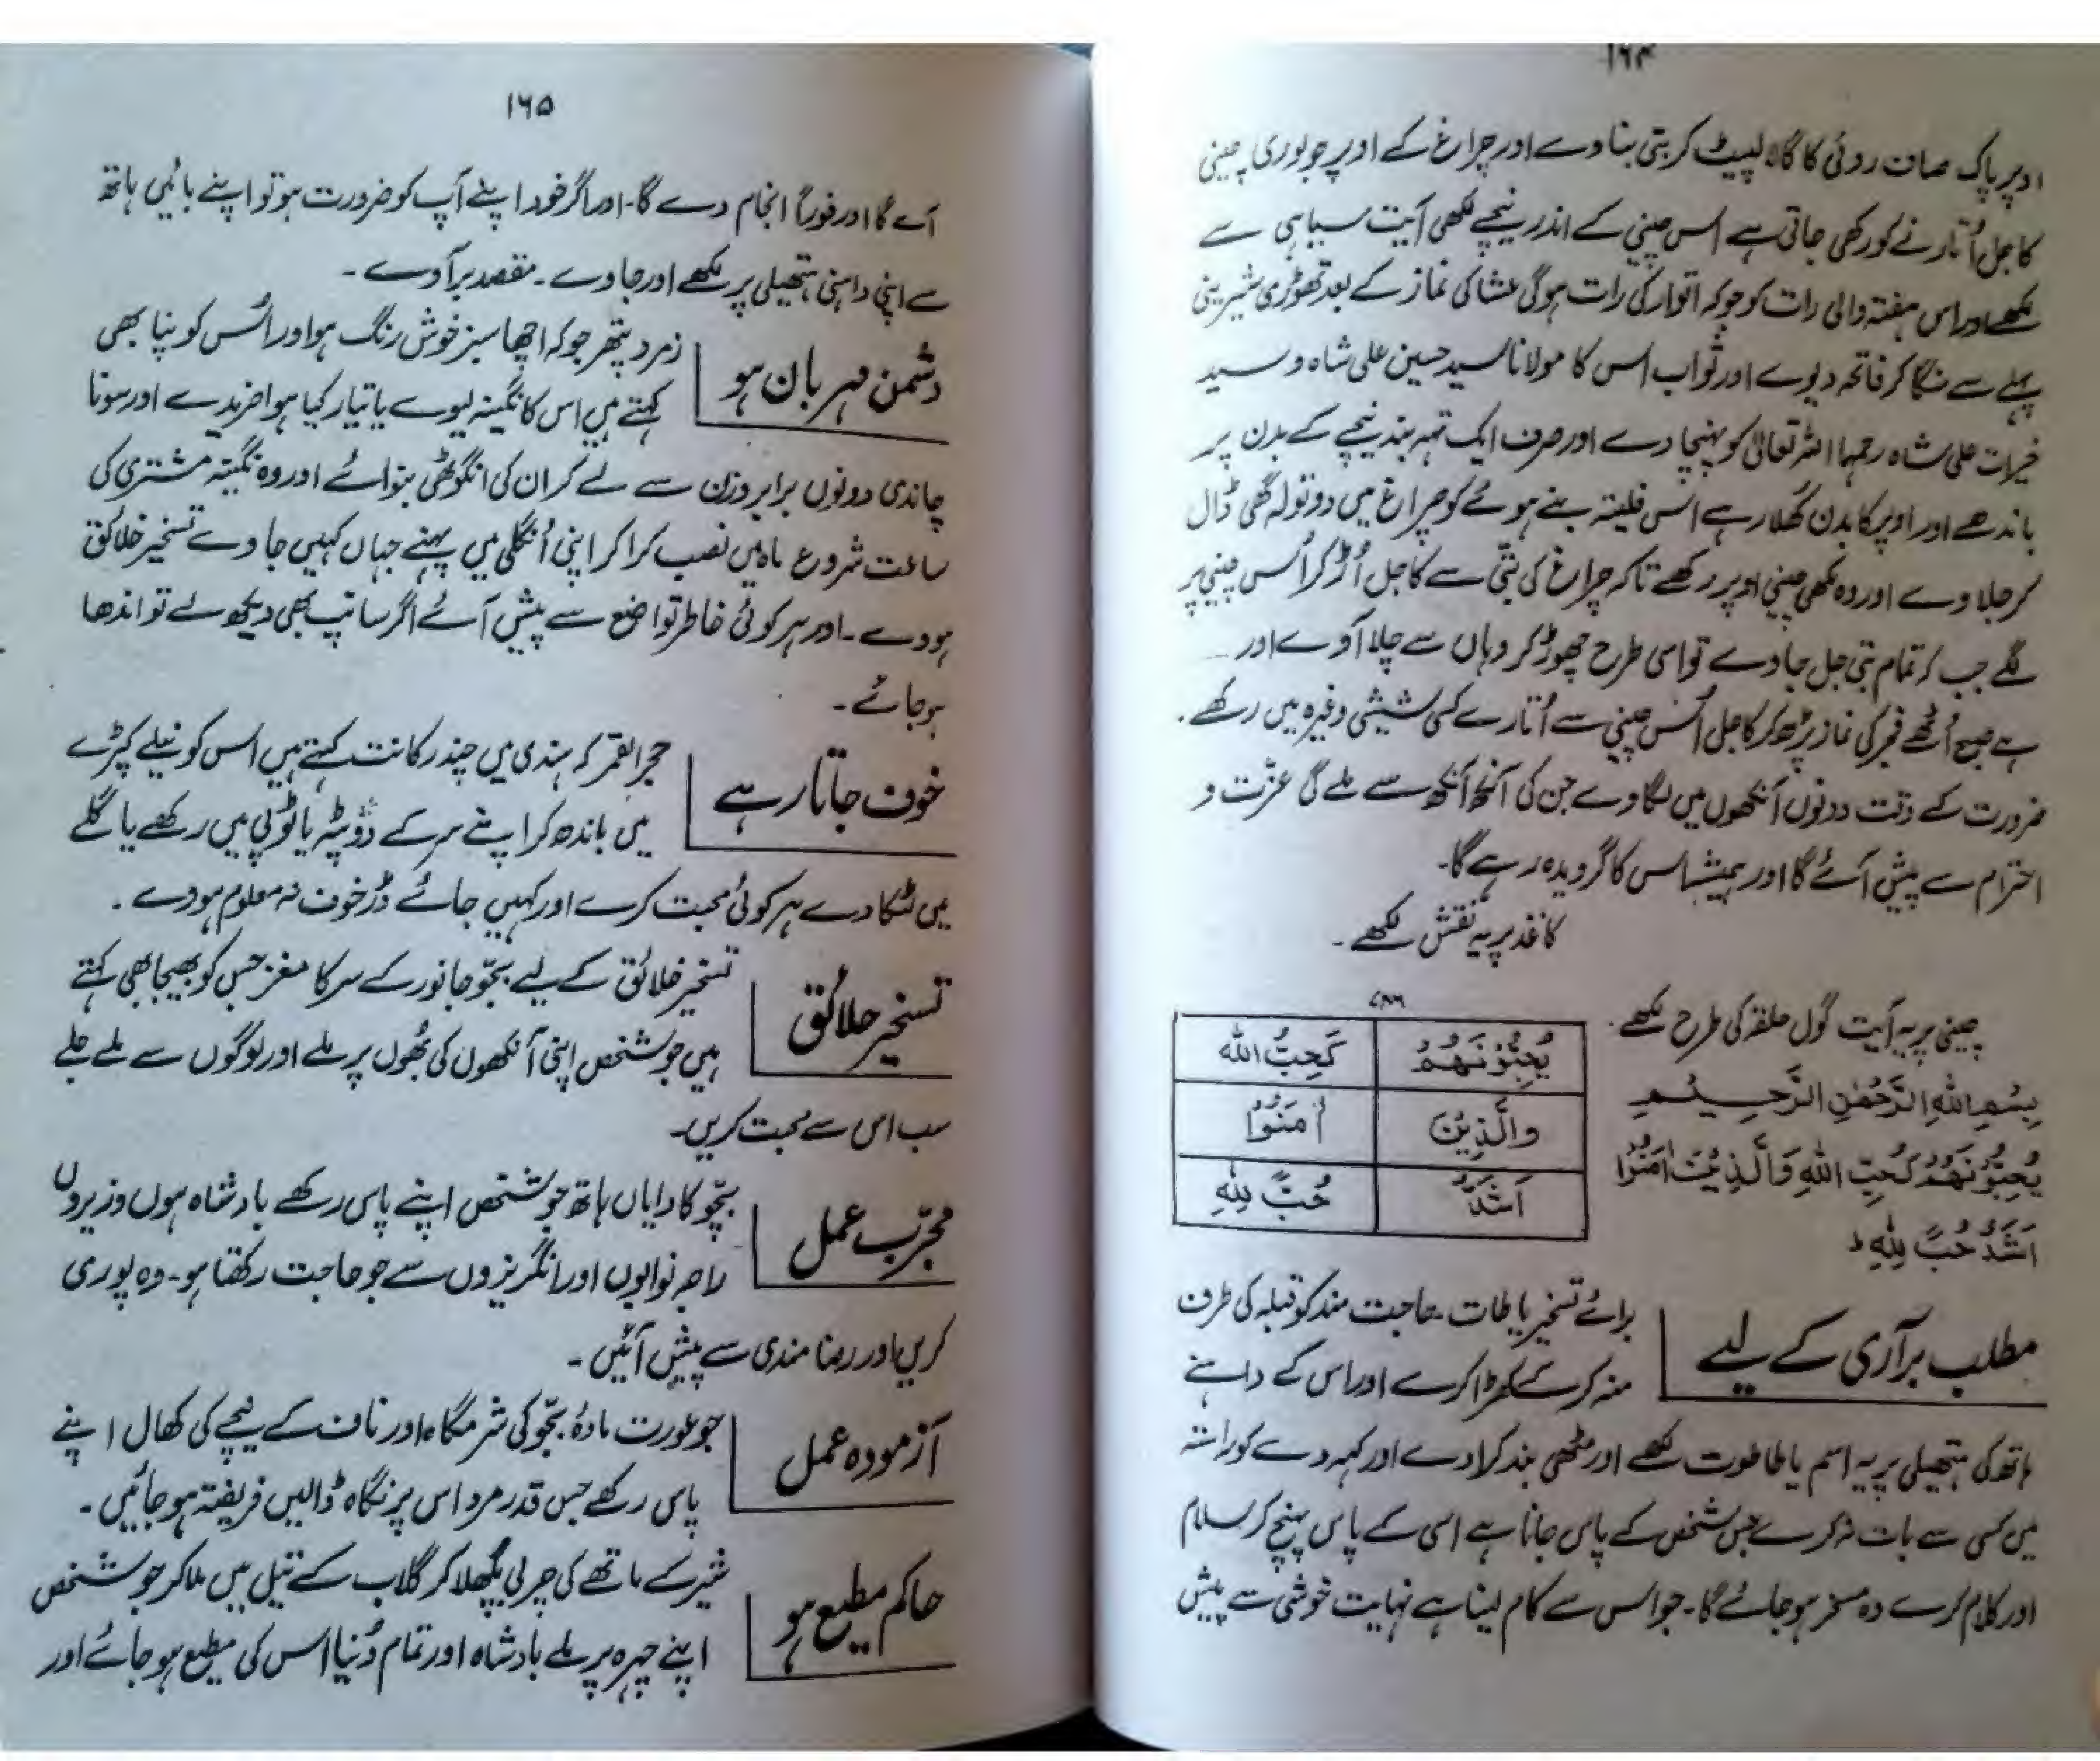 ۱۶۴
اوپر پاک صاف روئی کا گالہ لپیٹ کر بتی بنا دے اور چراغ کے اوپر جو پوری چینی
کاجل اُتارنے کو رکھی جاتی ہے اس چینی کے اندر نیچے لکھی آیت سیاہی سے
لکھے اور اس ہفتہ والی رات کو جو کہ اتوار کی رات ہوگی عشا کی نماز کے بعد تھوڑی شیرینی
پہلے سے منگا کر فاتحہ دیوے اور ثواب اس کا مولانا سید حسین علی شاہ و سید
خیرات علی شاہ رحمہا اللہ تعالیٰ کو پہنچا دے اور صرف ایک تہہ بند نیچے کے بدن پر
باندھے اور اوپر کا بدن کھلا رہے اس فلیتہ بنے ہوئے کو چراغ میں دو تولہ گھی ڈال
کر جلا دے اور وہ لکھی چینی اوپر رکھے تاکہ چراغ کی بتی سے کاجل اُڑ کر اُس چینی پر
لگے جب کہ تمام بتی جل جاوے تو اسی طرح چھوڑ کر وہاں سے چلا آوے اور
ہے صبح اُٹھے فجر کی نماز پڑھ کر کاجل اُس چینی سے اُتارے کسی شیشی وغیرہ میں رکھے۔
ضرورت کے وقت دونوں آنکھوں میں لگاوے جن کی آنکھ آنکھ سے ملے گی عزّت و
احترام سے پیش آئے گا اور ہمیشہ اس کا گرویدہ رہے گا۔
کاغذ پر یہ نقش لکھے۔
چینی پر یہ آیت گول حلقہ کی طرح لکھے۔
بِسْمِ اللهِ الرَّحْمٰنِ الرَّحِيْمِ
يُحِبُّوْنَهُمْ كَحُبِّ اللهِ وَالَّذِيْنَ اٰمَنُوْا
اَشَدُّ حُبًّ لِلّٰهِ ط
۷۸۶
يُحِبُّوْنَهُمْ كَحِبُّ الله
وَالَّذِيْنَ اٰمَنُوْا
اَشَدُّ حُبًّ لِلّٰهِ
مطلب برآری کے لیے
برائے تسخیر یا طات۔ حاجت مند کو قبلہ کی طرف
منہ کر کے کھڑا کرے اور اس کے داہنے
ہاتھ کی ہتھیلی پر یہ اسم یا طاطوت لکھے اور مٹھی بند کرا دے اور کہہ دے کو راستہ
میں کسی سے بات نہ کرے جس شخص کے پاس جانا ہے اسی کے پاس پہنچ کر سلام
اور کلام کرے وہ مسخر ہو جائے گا۔ جو اس سے کام لینا ہے نہایت خوشی سے پیش
۱۶۵
آے گا اور فوراً انجام دے گا۔ اور اگر خود اپنے آپ کو ضرورت ہو تو اپنے بائیں ہاتھ
سے اپنی داہنی ہتھیلی پر لکھے اور جاوے۔ مقصد برآوے۔
دشمن مہربان ہو
زمرد پتھر جو کہ اچھا سبز خوش رنگ ہو اور اُس کو پنا بھی
کہتے ہیں اس کا نگینہ لیوے یا تیار کیا ہوا خریدے اور سونا
چاندی دونوں برابر وزن سے لے کر ان کی انگوٹھی بنوائے اور وہ نگینہ مشتری کی
ساعت شروع ماہ میں نصب کرا کر اپنی اُنگلی میں پہنے جہاں کہیں جاوے تسخیر خلائق
ہووے۔ اور ہر کوئی خاطر تواضع سے پیش آئے اگر سانپ بھی دیکھ لے تو اندھا
ہو جائے۔
خوف جاتا رہے
حجر القمر کہ ہندی میں چندر کانت کہتے ہیں اس کو نیلے کپڑے
میں باندھ کر اپنے سر کے دوپٹہ یا ٹوپی میں رکھے یا گلے
میں لٹکا دے ہر کوئی محبت کرے اور کہیں جائے ڈر خوف نہ معلوم ہووے۔
تسخیر خلائق
تسخیر خلائق کے لیے بجّو جانور کے سر کا مغز جس کو بھیجا بھی کہتے
ہیں جو شخص اپنی آنکھوں کی بُھوں پر ملے اور لوگوں سے ملے جلے
سب اس سے محبت کریں۔
مجرّب عمل
بجّو کا دایاں ہاتھ جو شخص اپنے پاس رکھے بادشاہ ہوں وزیروں
راجہ نوابوں اور انگریزوں سے جو حاجت رکھتا ہو۔ وہ پوری
کریں اور رضا مندی سے پیش آئیں۔
آزمودہ عمل
جو عورت مادۂ بجّو کی شرمگاہ اور ناف کے نیچے کی کھال اپنے
پاس رکھے جس قدر مرد اس پر نگاہ ڈالیں فریفتہ ہو جائیں۔
حاکم مطیع ہو
شیر کے ماتھے کی چربی پگھلا کر گلاب کے تیل میں ملا کر جو شخص
اپنے چہرہ پر ملے بادشاہ اور تمام دُنیا اس کی مطیع ہو جائے اور